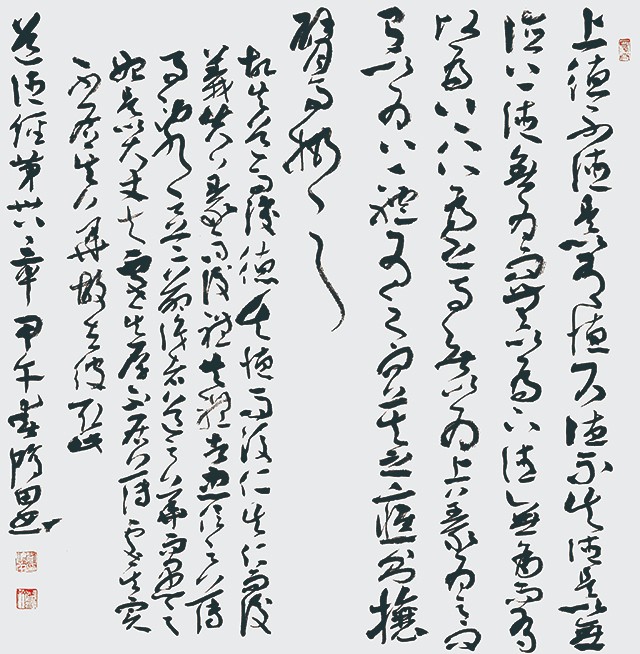 上德不德是以有德下德不失德是以無
德上德無為而無以為下德無為而有
以為上仁為之而無以為上義為之而
有以為上禮為之而莫之應則攘
臂而扔之
故失道而後德失德而後仁失仁而後
義失義而後禮夫禮者忠信之薄
而亂之首前識者道之華而愚之
始是以大丈夫處其厚不居其薄處其實
不居其華故去彼取此
道德經第卅八章甲午春